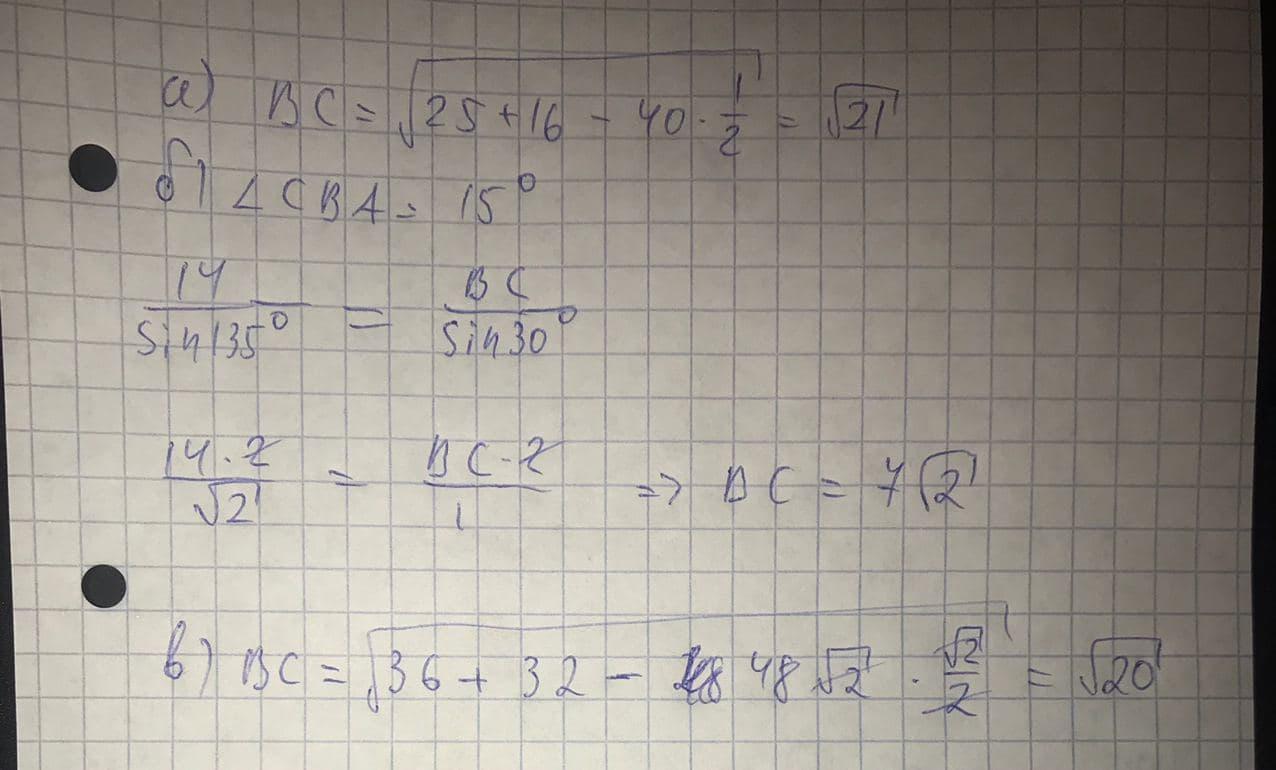 а) BC = √(25 + 16 - 40 · 1/2) = √21
б) ∠CBA = 15°
14/sin135° = BC/sin30°
14·2/√2 = BC·2/1 => BC = 7√2
в) BC = √(36 + 32 - 48√2 · √2/2) = √20